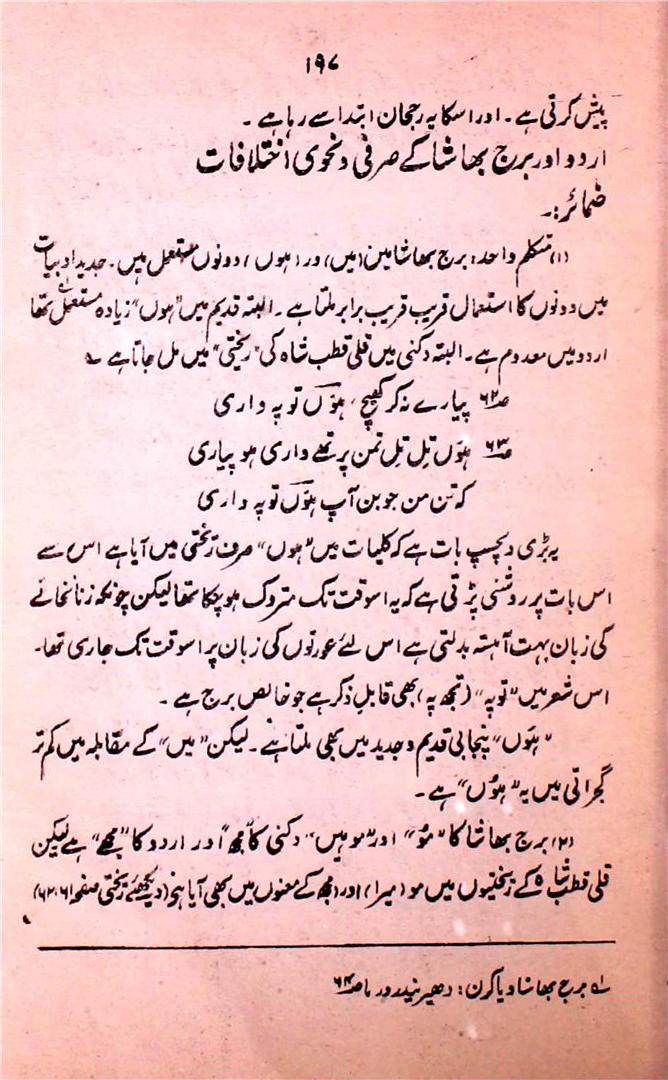 ۱۹۷
پیش کرتی ہے۔ اور اسکا یہ رجحان ابتدا سے رہا ہے۔
اردو اور برج بھاشا کے صرفی و نحوی اختلافات
ضمائر:۔
(۱) متکلم واحد: برج بھاشا میں (میں) ور (ہوں) دونوں مستعمل ہیں۔ جدید ادبیات
میں دونوں کا استعمال قریب قریب برابر ملتا ہے۔ البتہ قدیم میں "ہوں" زیادہ مستعمل تھا
اردو میں معدوم ہے۔ البتہ دکنی میں قلی قطب شاہ کی "ریختی" میں مل جاتا ہے ؎
ص۶۲ پیارے نہ کر کھیچ، ہوں تو پہ واری
ص۶۳ ہوں تِل تِل تمن پر تھے واری ہو پیاری
کہ تن من جوبن آپ ہوں تو پہ واری
یہ بڑی دلچسپ بات ہے کہ کلیات میں "ہوں" صرف ریختی میں آیا ہے اس سے
اس بات پر روشنی پڑتی ہے کہ یہ اسوقت تک متروک ہو چکا تھا لیکن چونکہ زنانخانے
کی زبان بہت آہستہ بدلتی ہے اس لئے عورتوں کی زبان پر اسوقت تک جاری تھا۔
اس شعر میں "توپہ" (تجھ پہ) بھی قابلِ ذکر ہے جو خالص برج ہے۔
"ہَوں" پنجابی قدیم و جدید میں بھی ملتا ہے۔ لیکن "میں" کے مقابلہ میں کم تر
گجراتی میں یہ "ہوُں" ہے۔
(۲) برج بھاشا کا "مُو" اور "موہیں" دکنی کا "مجھ" اور اردو کا "مجھے" ہے لیکن
قلی قطب شاہ کے ریختیوں میں مو (میرا) اور (مجھ کے معنوں میں بھی آیا ہے (دیکھئے ریختی صفحہ ۶۲،۶۱)
؎۱ برج بھاشا ویاکرن: دھیریندر ورما ص۶۴